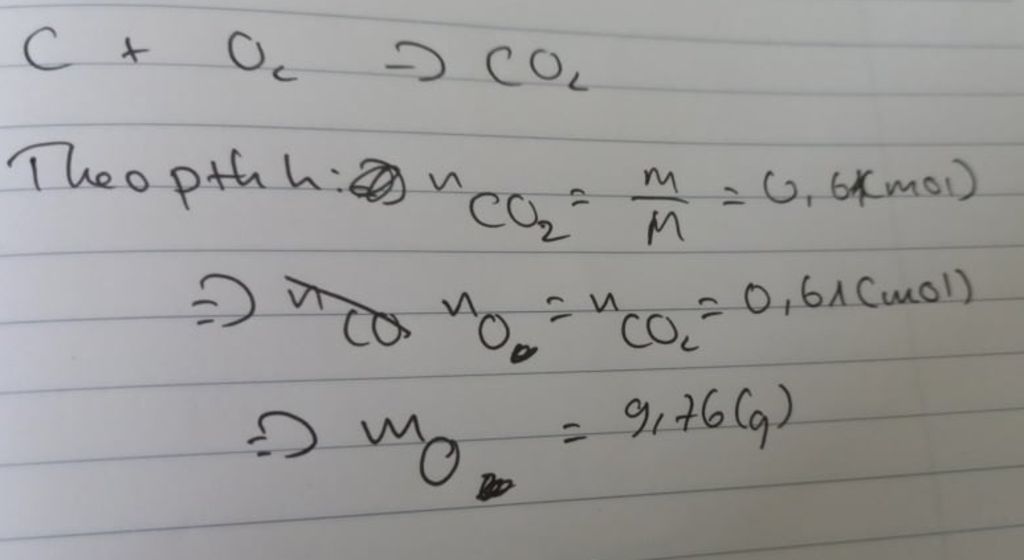 C + O₂ => CO₂
Theo pthh: n CO₂ = m/M = 0,61(mol)
=> n O = n CO₂ = 0,61(mol)
=> m O = 9,76(g)